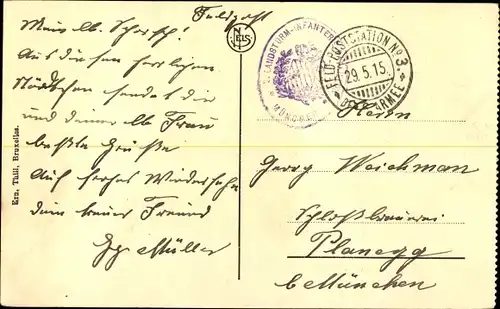 Feldpost
Mein lb. Schorsch!
Aus diesem herrlichen
Städtchen sendet dir
und deiner lb Frau
beste Grüße
Auf frohes Wiedersehn
dein treuer Freund
Gg Müller
NELS
LANDSTURM-INFANTERIE
MÜNCHEN
FELD-POSTSTATION No 3.
29.5.15.
ARMEE
Herrn
Georg Weichman
Schloßbrauerei
Planegg
b München
Ern. Thill, Bruxelles.